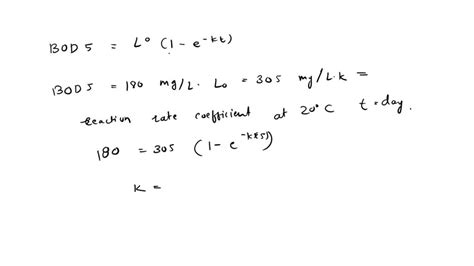 BOD5 = L° (1 - e^-kt)
BOD5 = 180 mg/L. L₀ = 305 mg/L.k =
reaction rate coefficient at 20°C t = day.
180 = 305 (1 - e^-k(5))
K =